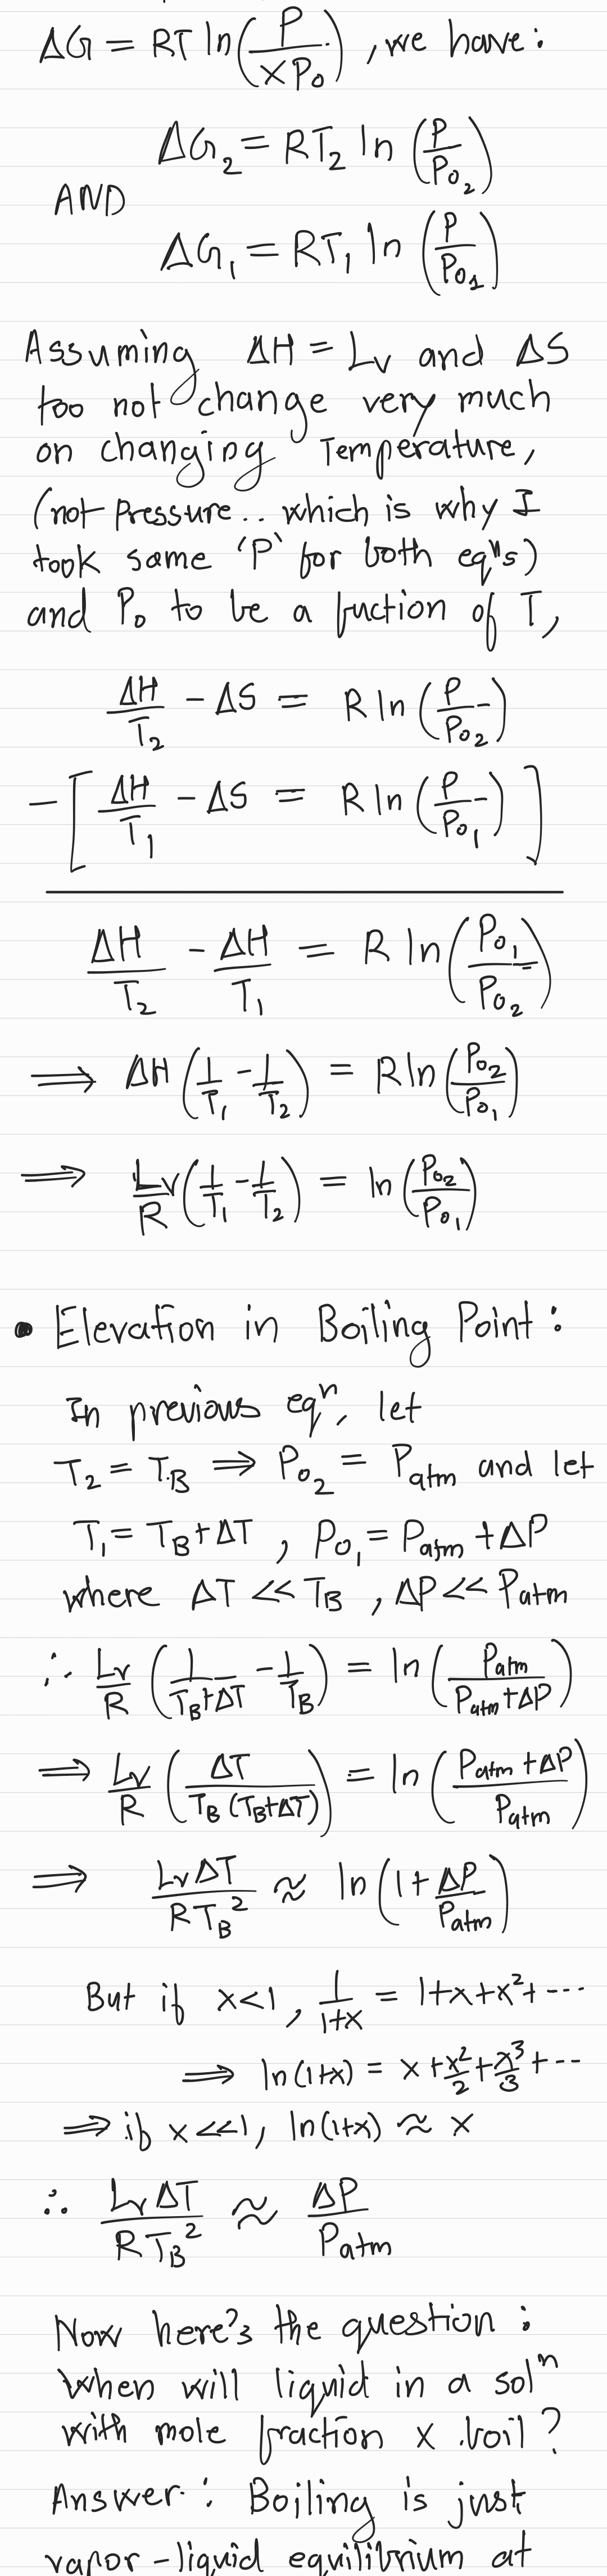 ΔG = RT ln(P/(x P₀)) , we have :
ΔG₂ = RT₂ ln (P/P₀₂)
AND
ΔG₁ = RT₁ ln (P/P₀₁)
Assuming ΔH = Lv and ΔS
too not change very much
on changing Temperature,
(not Pressure.. which is why I
took same 'P' for both eqⁿs)
and P₀ to be a fuction of T,
ΔH/T₂ - ΔS = R ln (P/P₀₂)
- [ ΔH/T₁ - ΔS = R ln (P/P₀₁) ]
ΔH/T₂ - ΔH/T₁ = R ln (P₀₁/P₀₂)
⟹ ΔH (1/T₁ - 1/T₂) = R ln (P₀₂/P₀₁)
⟹ Lv/R (1/T₁ - 1/T₂) = ln (P₀₂/P₀₁)
• Elevation in Boiling Point :
In previous eqⁿ, let
T₂ = T_B ⟹ P₀₂ = Patm and let
T₁ = T_B + ΔT , P₀₁ = Patm + ΔP
where ΔT << T_B , ΔP << Patm
∴ Lv/R (1/(T_B+ΔT) - 1/T_B) = ln (Patm/(Patm+ΔP))
⟹ Lv/R (ΔT/(T_B (T_B+ΔT))) = ln ((Patm + ΔP)/Patm)
⟹ LvΔT/(RT_B²) ≈ ln (1 + ΔP/Patm)
But if x<1, 1/(1+x) = 1+x+x²+ ···
⟹ ln(1+x) = x + x²/2 + x³/3 + ··
⟹ if x <<1, ln(1+x) ≈ x
∴ LvΔT/(RT_B²) ≈ ΔP/Patm
Now here's the question :
When will liquid in a solⁿ
with mole fraction x boil ?
Answer : Boiling is just
vapor-liquid equilibrium at